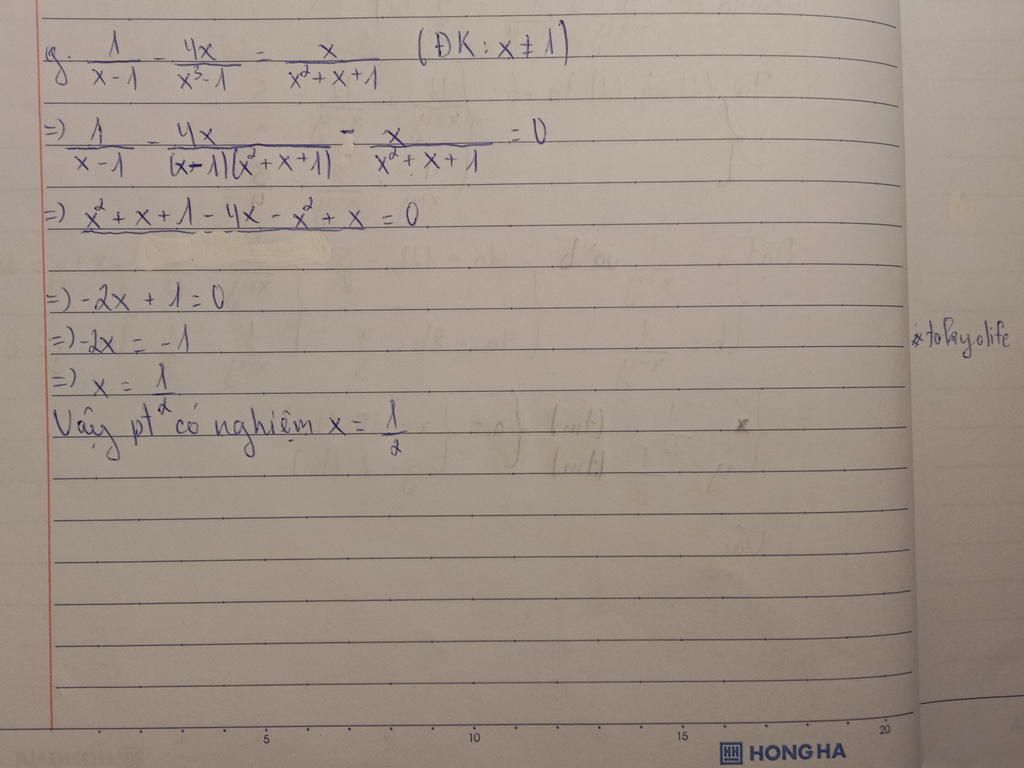 g. 1/(x-1) - 4x/(x³-1) = x/(x²+x+1) (ĐK: x ≠ 1)
=) 1/(x-1) - 4x/((x-1)(x²+x+1)) - x/(x²+x+1) = 0
=) x²+x+1-4x-x²+x = 0
=) -2x + 1 = 0
=) -2x = -1
=) x = 1/2
Vậy pt có nghiệm x = 1/2
tokyolife
5 10 15 20
HH HONG HA